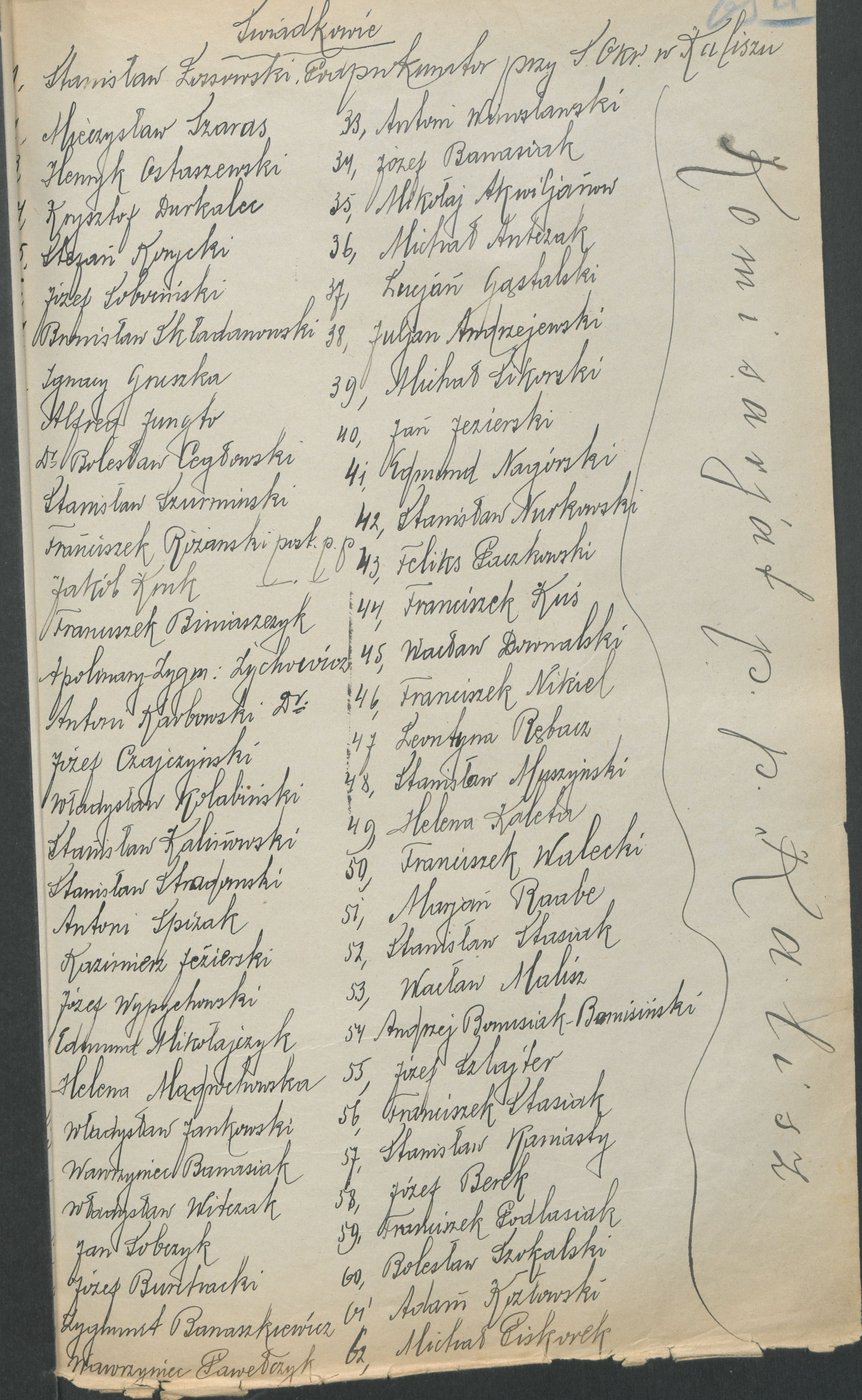 Świadkowie
Stanisław Lossowski, Podprokurator przy S. Okr. w Kaliszu
Mieczysław Szaras
Henryk Ostaszewski
Krysztof Durkalec
Stefan Korycki
Józef Soboniński
Bronisław Składanowski
Ignacy Gruszka
Alfred Jungto
Dr. Bolesław Cegłowski
Stanisław Szurminski
Franciszek Różanski post. p. p
Jakób Kruk
Franciszek Biniaszczyk
Apolinary-Zygm: Zychowicz
Antoni Karbowski Dr:
Józef Czajczyński
Władysław Kołabiński
Stanisław Kalinowski
Stanisław Stradomski
Antoni Spiżak
Kazimierz Jezierski
Józef Wypychowski
Edmund Mikołajczyk
Helena Mądwchowska
Władysław Jankowski
Wawrzyniec Banasiak
Władysław Witczak
Jan Sobczyk
Józef Buntracki
Zygmunt Banaszkiewicz
Wawrzyniec Pawełczyk
33, Antoni Winosławski
34, Józef Banasiak
35, Mikołaj Akwiljanow
36, Michał Antczak
37, Lucjan Gąstalski
38, Juljan Andrzejewski
39, Michał Sikorski
40, Jan Jezierski
41, Edmund Nagórski
42, Stanisław Nurkowski
43, Feliks Paczkowski
44, Franciszek Kuś
45, Wacław Downalski
46, Franciszek Nikiel
47 Leontyna Rębacz
48, Stanisław Muszyński
49 Helena Kaleta
50, Franciszek Walecki
51, Marjan Raabe
52, Stanisław Stasiak
53, Wacław Malisz
54 Andrzej Bonusiak-Bonisiński
55, Józef Szlajfer
56, Franciszek Stasiak
57, Stanisław Kaniasty
58, Józef Berek
59, Franciszek Podlasiak
60, Bolesław Szokalski
61 Adam Kozłowski
62, Michał Piskorek
Komisarjat P. P. Kalisz